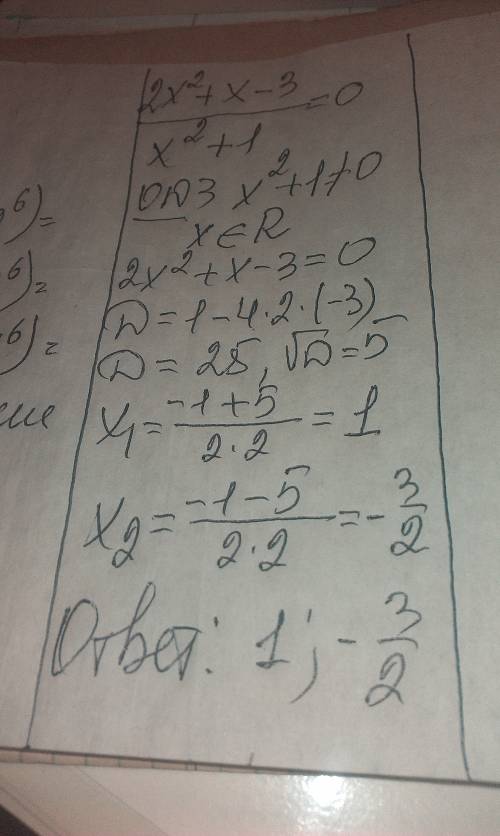 2x²+x-3 / x²+1 = 0
ОДЗ x²+1≠0
x∈R
2x²+x-3=0
D=1-4·2·(-3)
D=25, √D=5
x₁= -1+5 / 2·2 = 1
x₂= -1-5 / 2·2 = - 3/2
Ответ: 1; - 3/2
⁶)=
⁶)=
⁶)=